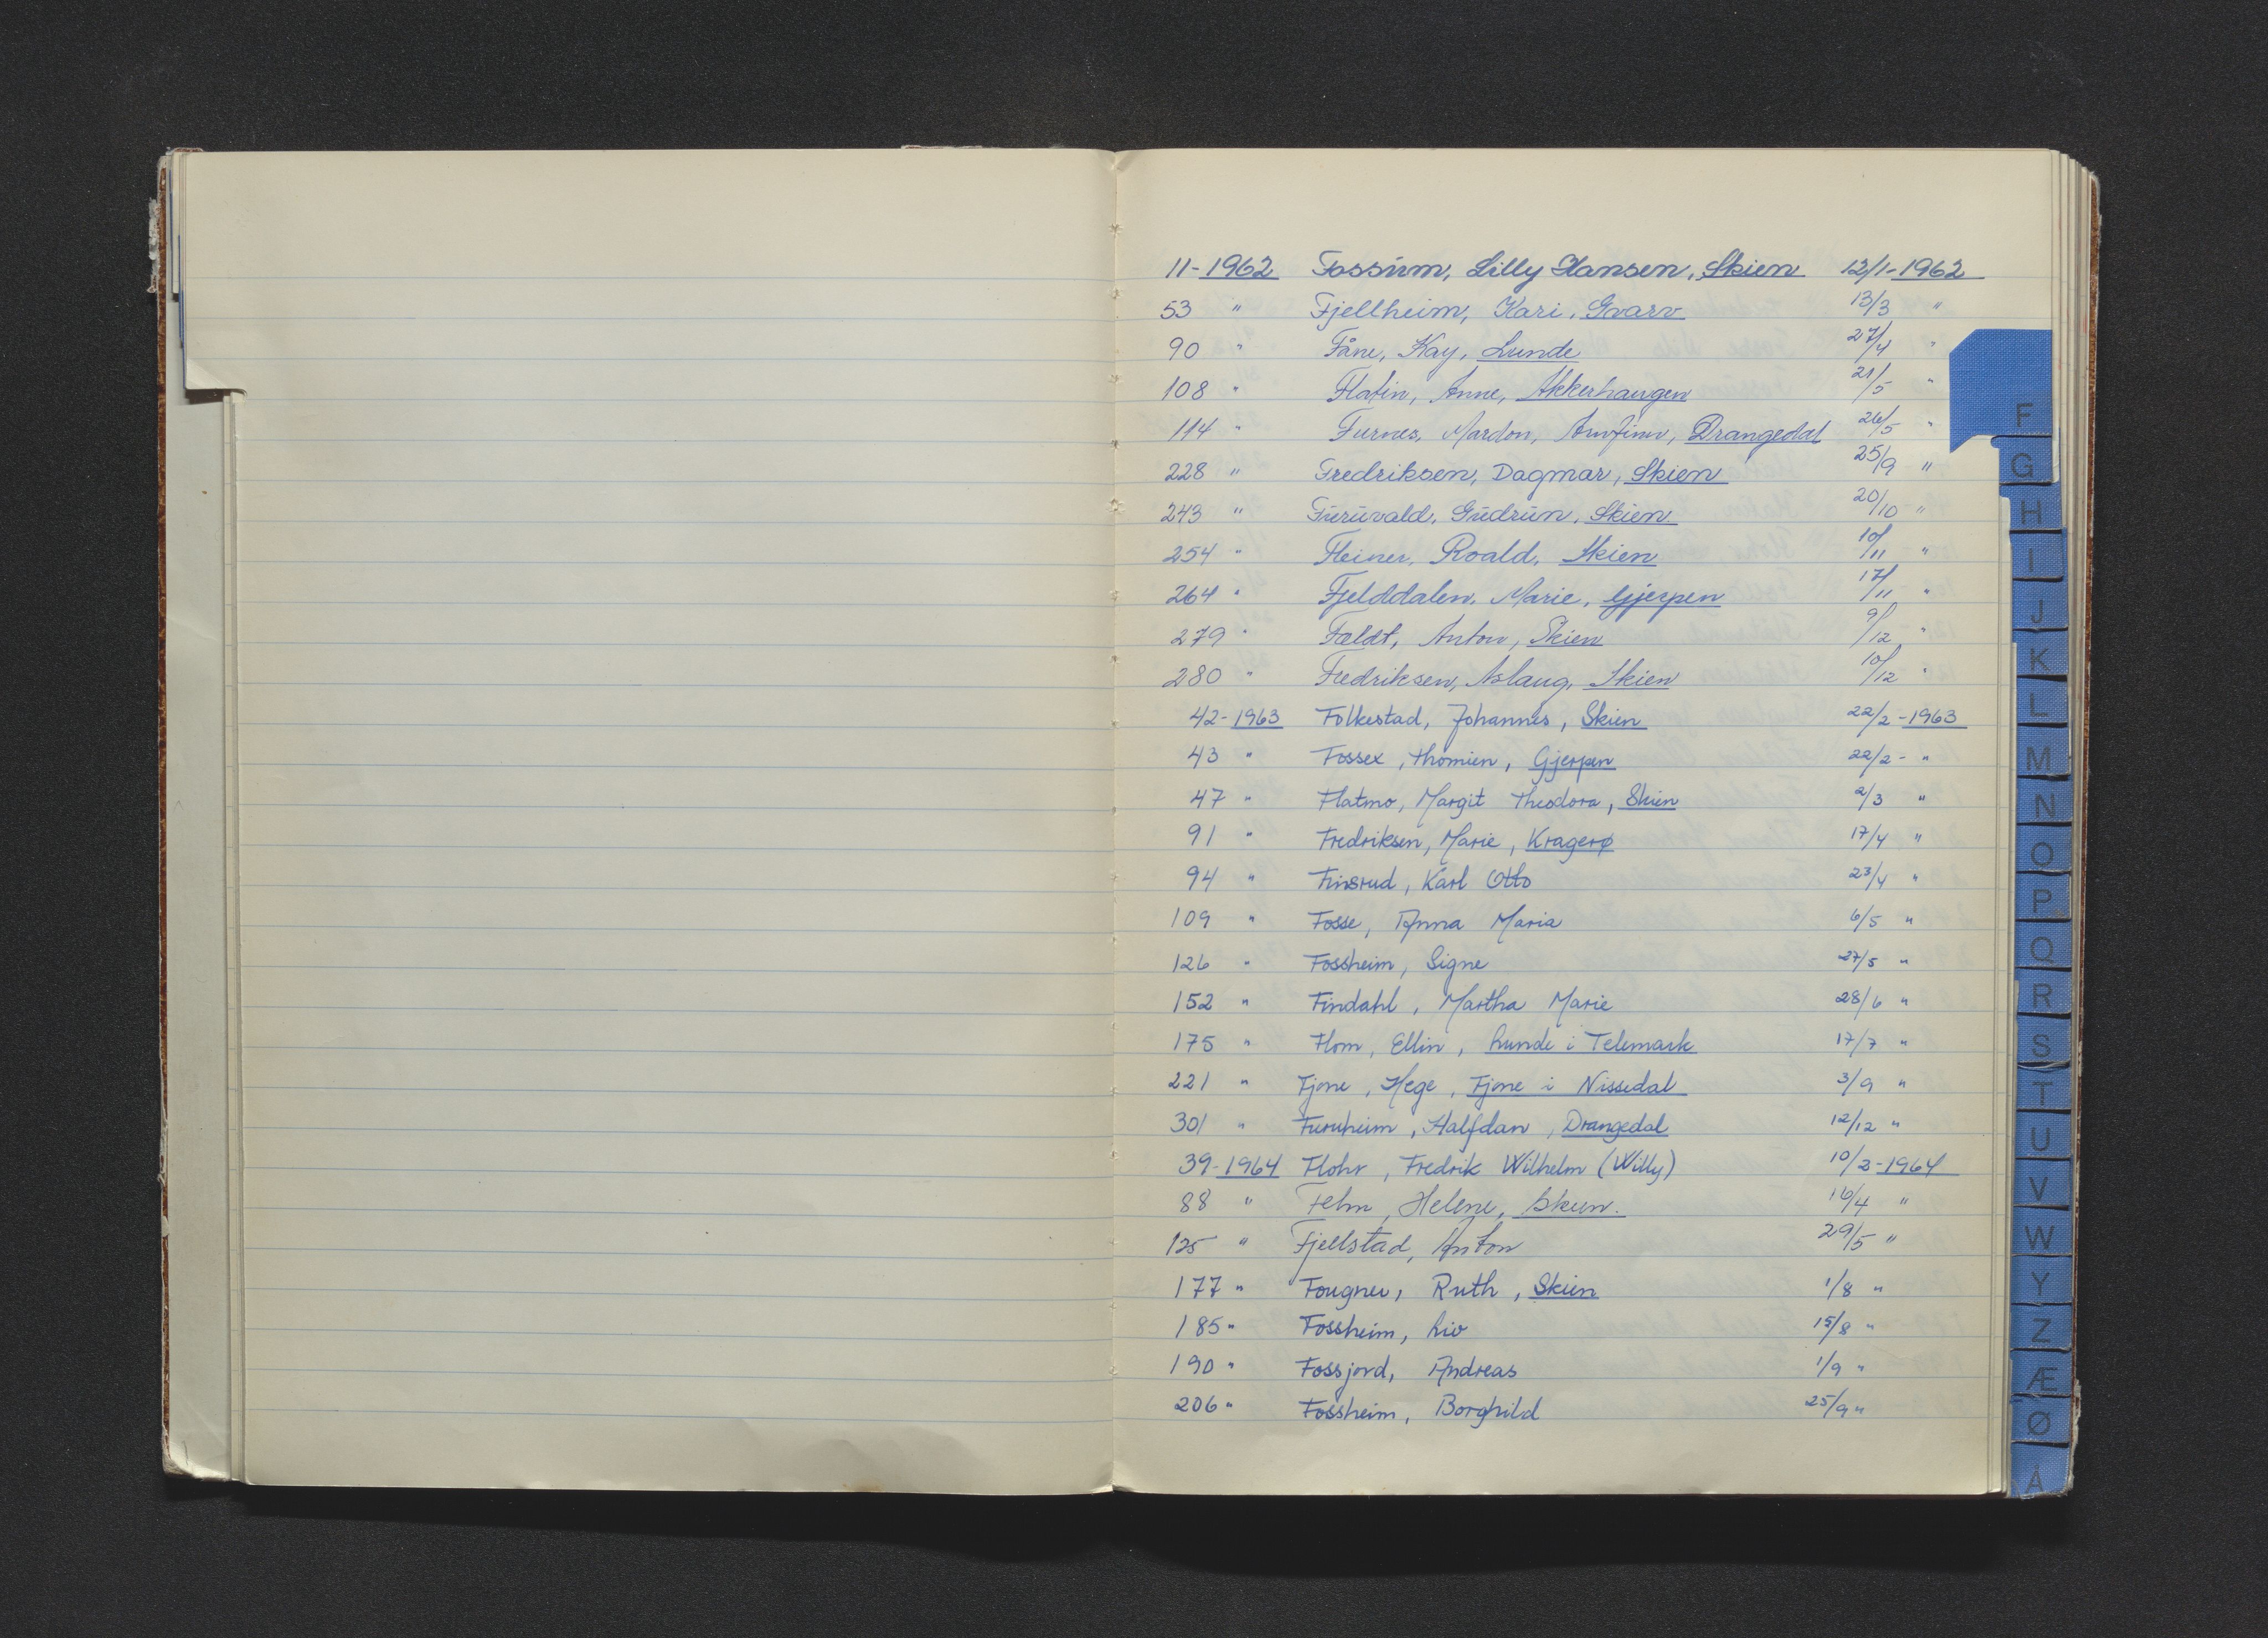 11-1962 Fossum, Lilly Hansen, Skien 12/1-1962
53 " Fjellheim, Kari, Gvarv 13/3 "
90 " Fåne, Kay, Lunde 27/4 "
108 " Flatin, Anne, Akkerhaugen 21/5 "
114 " Furnes, Mardon, Arnfinn, Drangedal 26/5 "
228 " Fredriksen, Dagmar, Skien 25/9 "
243 " Furuvald, Gudrun, Skien 20/10 "
254 " Fleiner, Roald, Skien 10/11 "
264 " Fjelddalen, Marie, Gjerpen 17/11 "
279 " Fældt, Anton, Skien 9/12 "
280 " Fredriksen, Aslaug, Skien 10/12 "
42-1963 Folkestad, Johannes, Skien 22/2-1963
43 " Fossex, Thomien, Gjerpen 22/2- "
47 " Flatmo, Margit Theodora, Skien 2/3 "
91 " Fredriksen, Marie, Kragerø 17/4 "
94 " Finsrud, Karl Otto 23/4 "
109 " Fosse, Anna Maria 6/5 "
126 " Fossheim, Signe 27/5 "
152 " Findahl, Martha Marie 28/6 "
175 " Flom, Ellin, Lunde i Telemark 17/7 "
221 " Fjone, Hege, Fjone i Nissedal 3/9 "
301 " Furuheim, Halfdan, Drangedal 12/12 "
39-1964 Flohr, Fredrik Wilhelm (Willy) 10/2-1964
88 " Fehn, Helene, Skien. 16/4 "
125 " Fjellstad, Anton 29/5 "
177 " Fougner, Ruth, Skien 1/8 "
185 " Fossheim, Liv 15/8 "
190 " Fossjord, Andreas 1/9 "
206 " Fossheim, Borghild 25/9 "
F
G
H
I
J
K
L
M
N
O
P
Q
R
S
T
U
V
W
Y
Z
Æ
Ø
Å